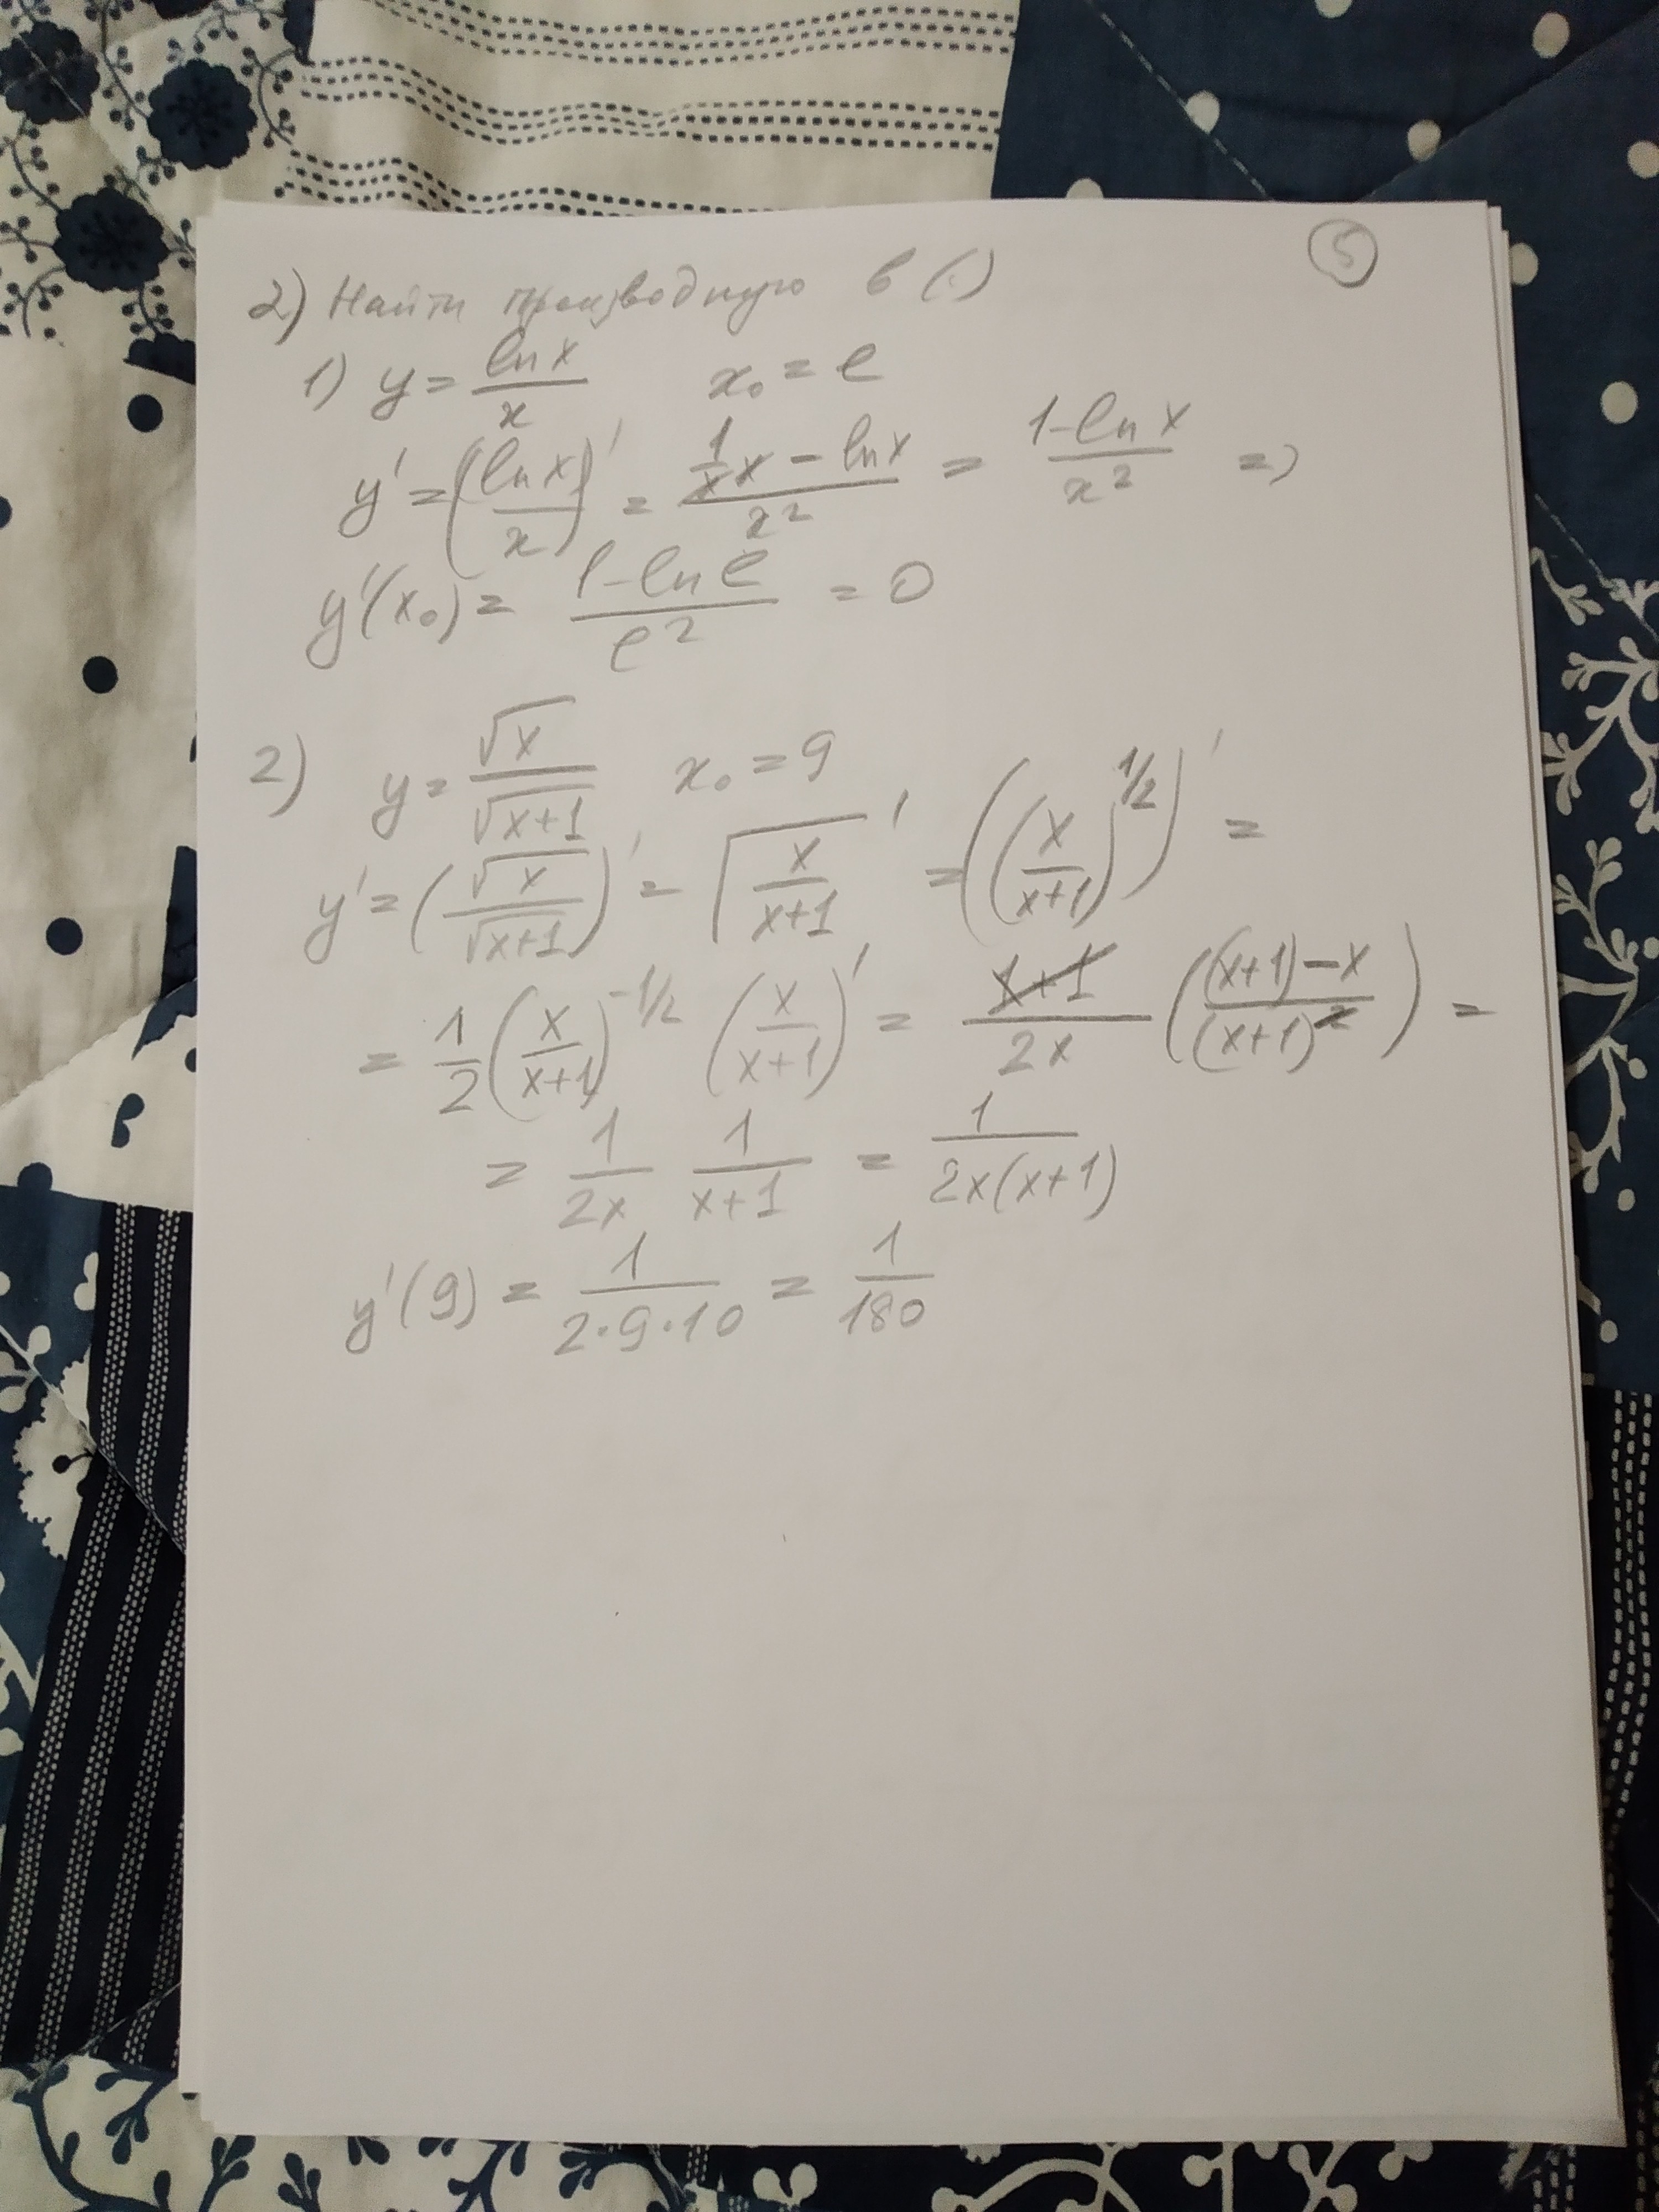 5
2) Найти производную в (.)
1) y = ln x / x   x₀ = e
y' = (ln x / x)' = (1/x x − ln x) / x² = (1 − ln x) / x² =>
y'(x₀) = (1 − ln e) / e² = 0
2) y = √x / √(x+1)   x₀ = 9
y' = (√x / √(x+1))' = √(x / (x+1))' = ((x / (x+1))^1/2)' =
= 1/2 (x / (x+1))^−1/2 (x / (x+1))' = (x+1) / 2x (((x+1) − x) / (x+1)²) =
= 1 / 2x 1 / (x+1) = 1 / 2x(x+1)
y'(9) = 1 / 2·9·10 = 1 / 180